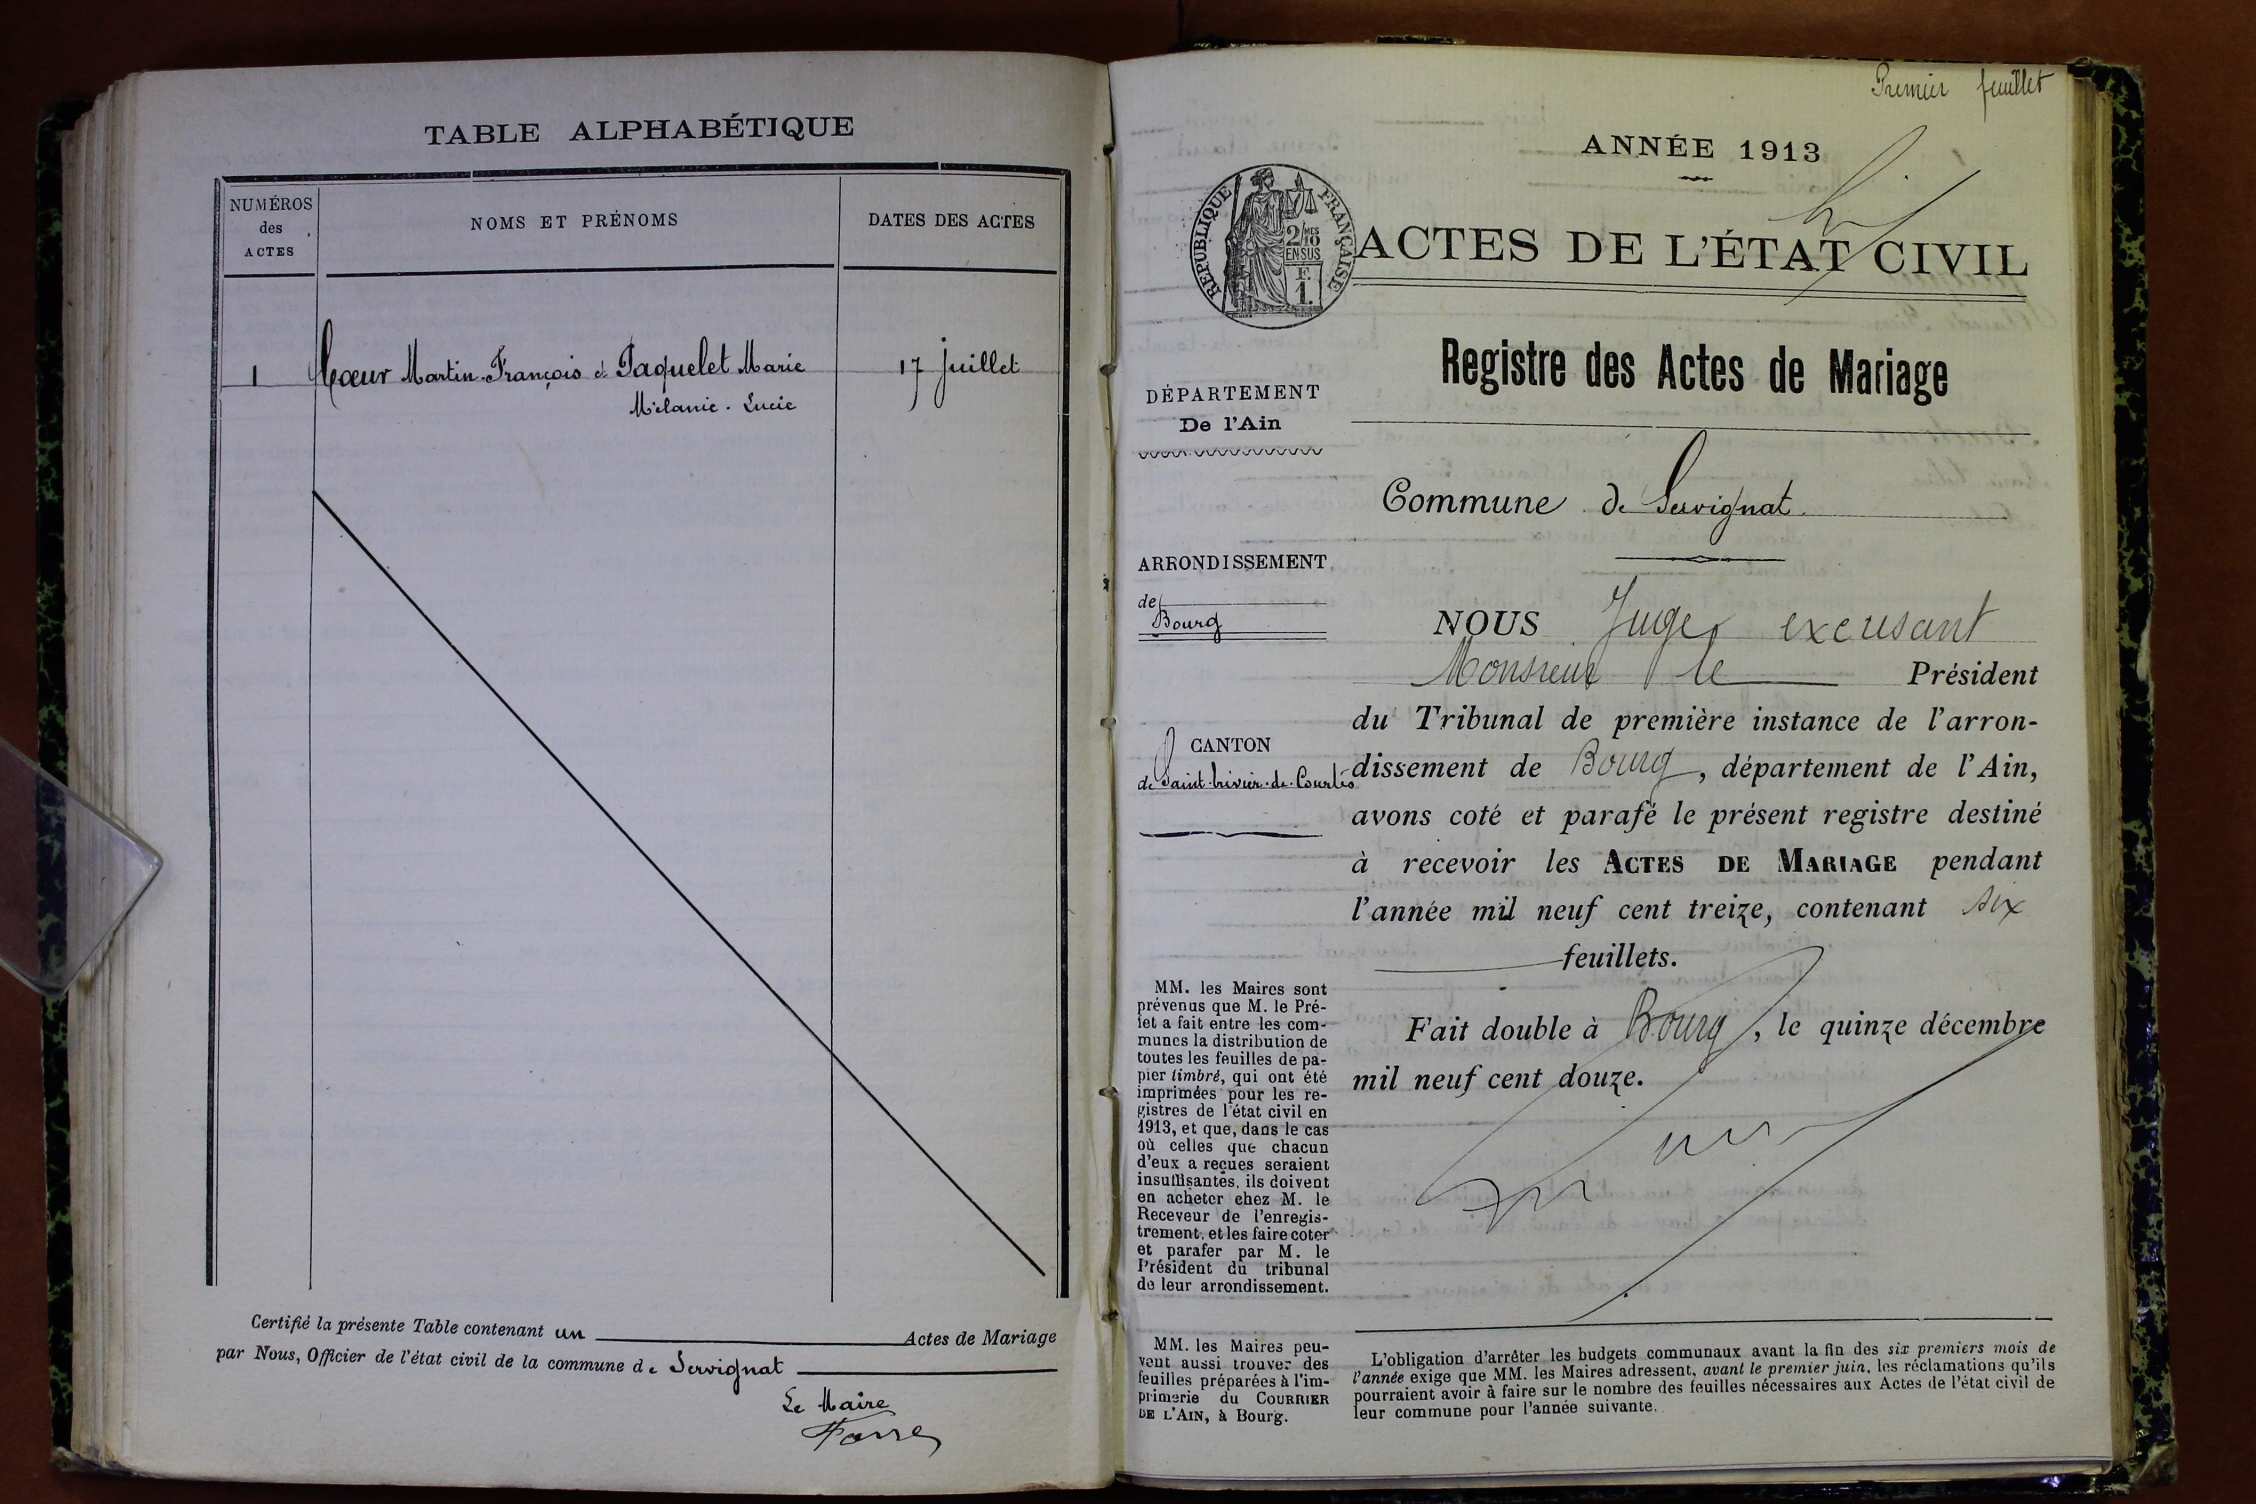 TABLE ALPHABÉTIQUE
NUMÉROS
des
ACTES
NOMS ET PRÉNOMS
DATES DES ACTES
1 Cœur Martin-François et Paquelet Marie 17 juillet
Mélanie-Lucie
Certifié la présente Table contenant un Actes de Mariage
par Nous, Officier de l'état civil de la commune de Servignat
Le Maire
Premier feuillet
ANNÉE 1913
RÉPUBLIQUE FRANÇAISE
2/10 MES
EN SUS
F.
1.
ACTES DE L'ÉTAT CIVIL
Registre des Actes de Mariage
DÉPARTEMENT
De l'Ain
Commune de Servignat
ARRONDISSEMENT
de
Bourg
CANTON
de Saint-Trivier-de-Courtes
NOUS Juge excusant
Monsieur le Président
du Tribunal de première instance de l'arron-
dissement de Bourg, département de l'Ain,
avons coté et parafé le présent registre destiné
à recevoir les ACTES DE MARIAGE pendant
l'année mil neuf cent treize, contenant six
feuillets.
Fait double à Bourg, le quinze décembre
mil neuf cent douze.
MM. les Maires sont
prévenus que M. le Pré-
fet a fait entre les com-
munes la distribution de
toutes les feuilles de pa-
pier timbré, qui ont été
imprimées pour les re-
gistres de l'état civil en
1913, et que, dans le cas
où celles que chacun
d'eux a reçues seraient
insuffisantes, ils doivent
en acheter chez M. le
Receveur de l'enregis-
trement, et les faire coter
et parafer par M. le
Président du tribunal
de leur arrondissement.
MM. les Maires peu-
vent aussi trouver des
feuilles préparées à l'im-
primerie du COURRIER
DE L'AIN, à Bourg.
L'obligation d'arrêter les budgets communaux avant la fin des six premiers mois de
l'année exige que MM. les Maires adressent, avant le premier juin, les réclamations qu'ils
pourraient avoir à faire sur le nombre des feuilles nécessaires aux Actes de l'état civil de
leur commune pour l'année suivante.